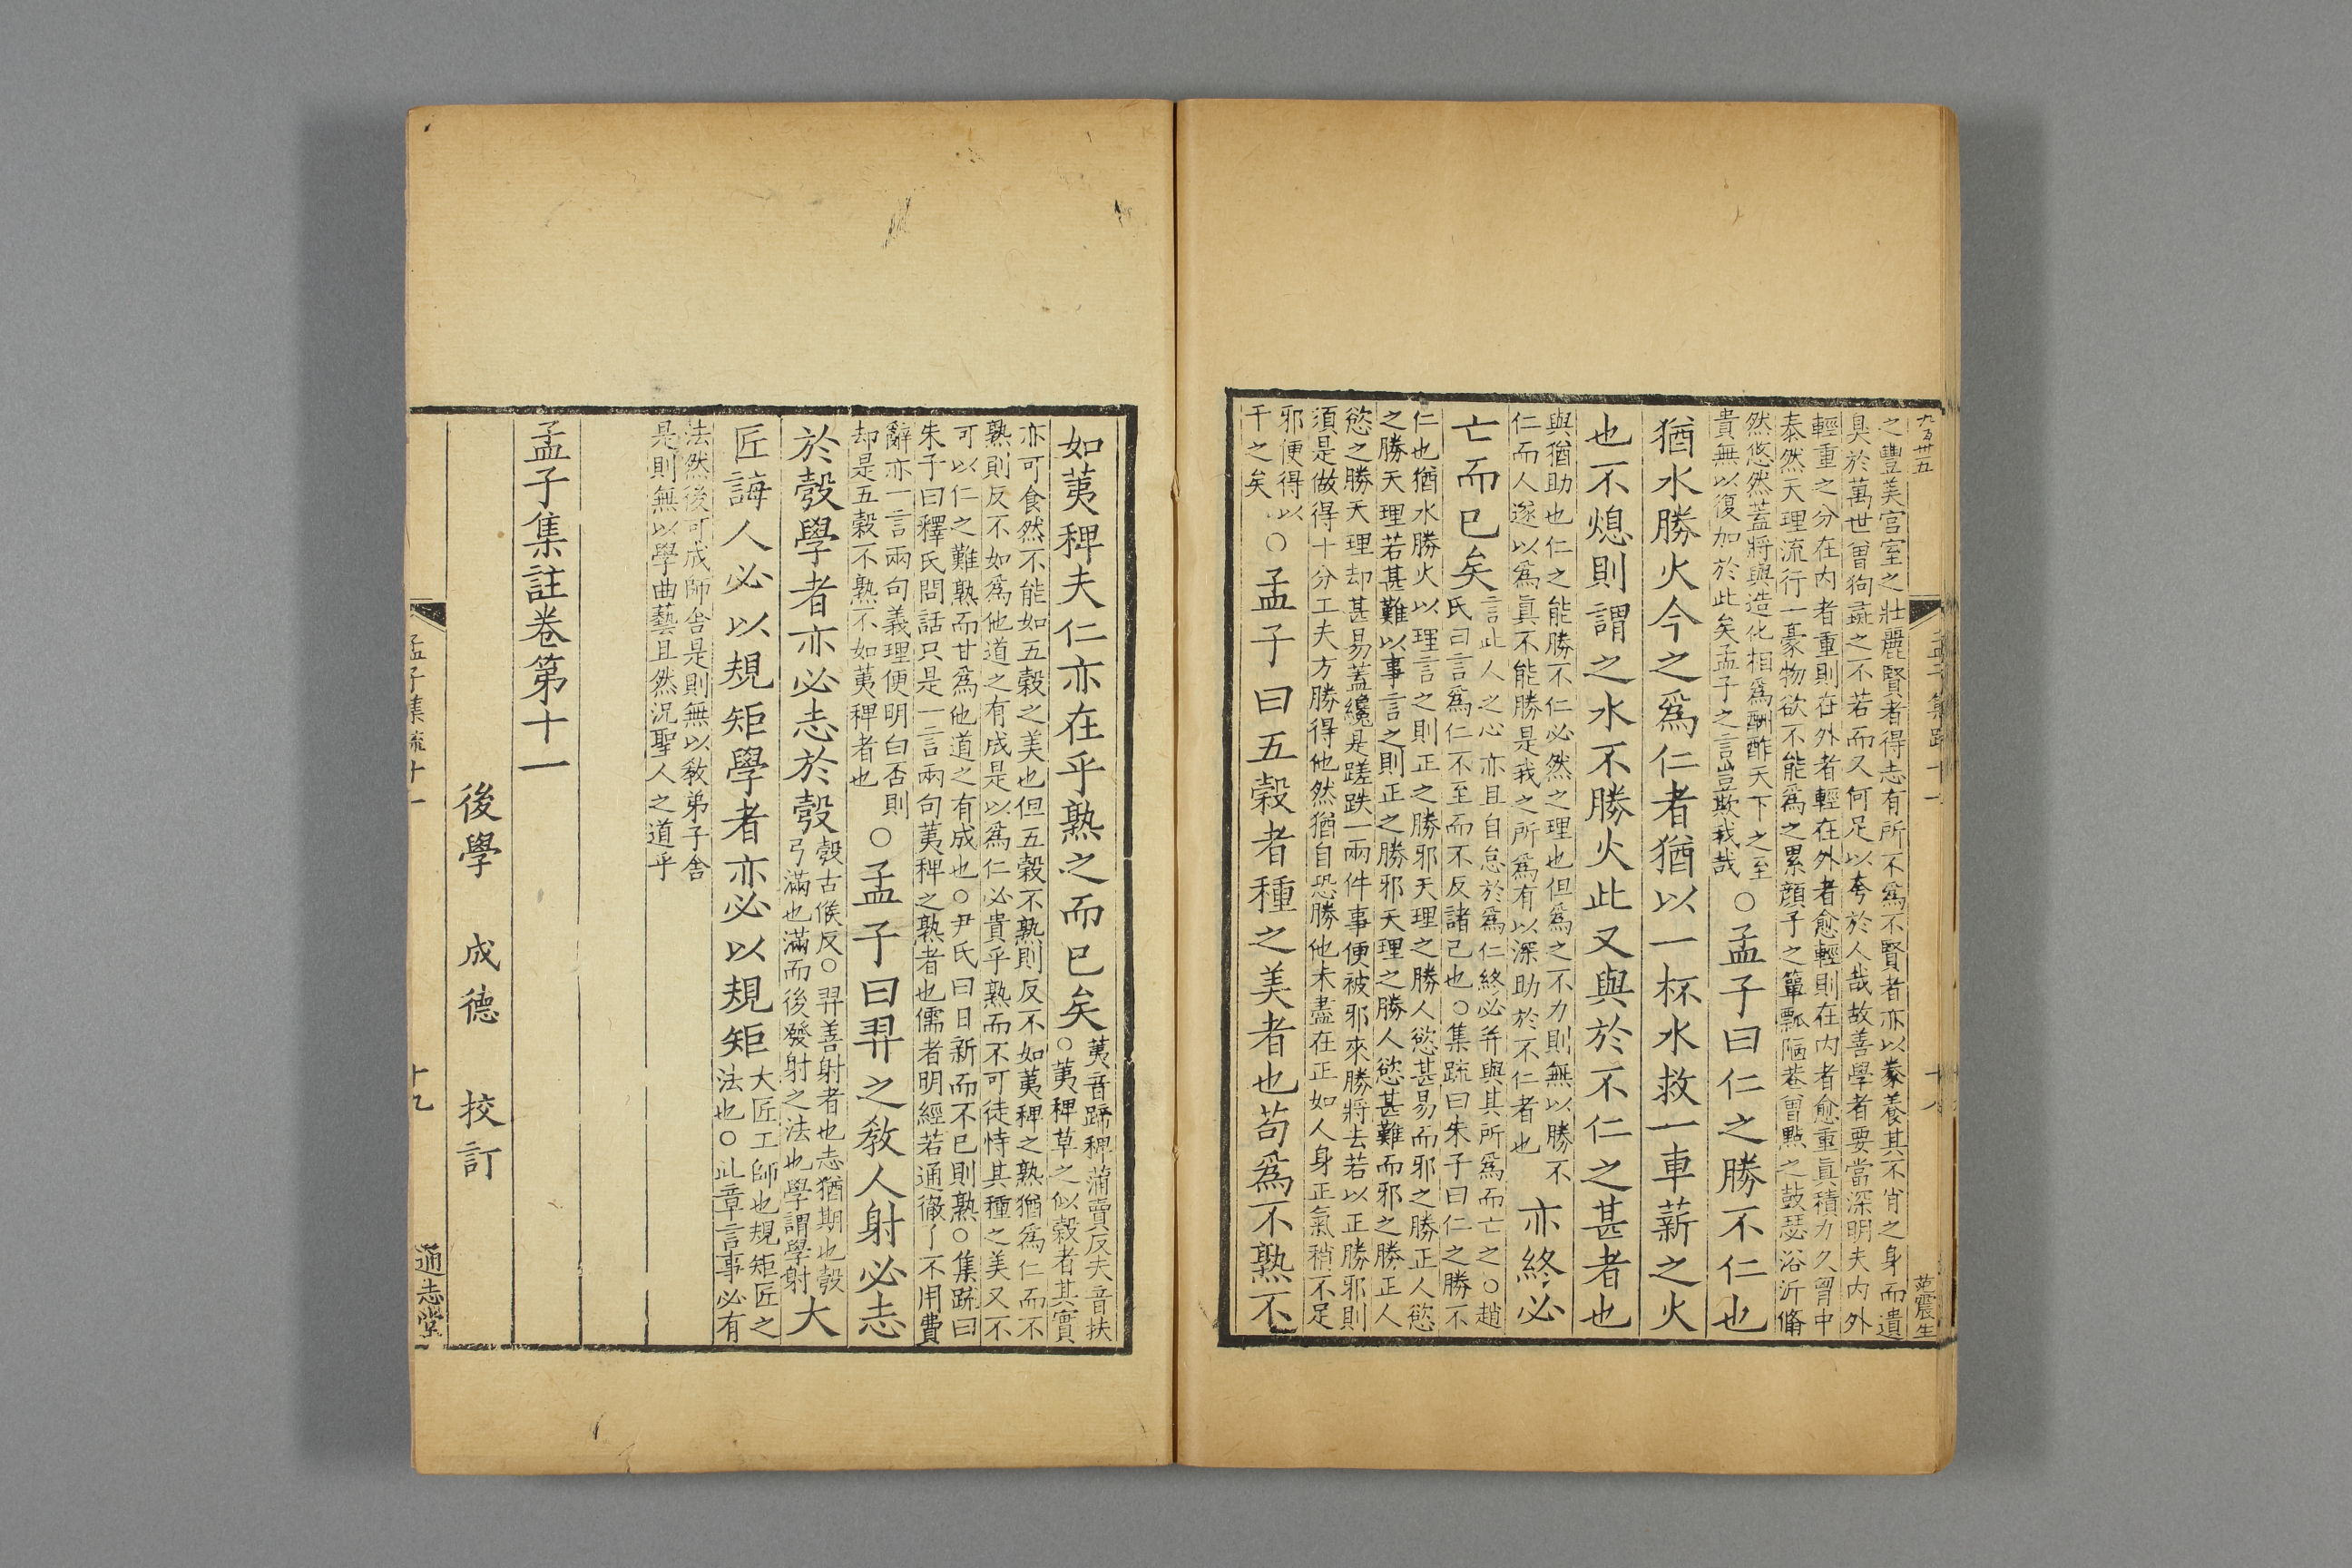 九百卅五
之豐美宮室之壯麗賢者得志有所不爲不賢者亦以豢養其不肖之身而遺
臭於萬世曾狗彘之不若而又何足以夸於人哉故善學者要當深明夫内外
輕重之分在内者重則在外者輕在外者愈輕則在内者愈重眞積力久胷中
泰然天理流行一豪物欲不能爲之累顔子之簞瓢陋巷曾點之鼓瑟浴沂翛
然悠然蓋將與造化相爲酬酢天下之至
貴無以復加於此矣孟子之言豈欺我哉
○孟子曰仁之勝不仁也
猶水勝火今之爲仁者猶以一杯水救一車薪之火
也不熄則謂之水不勝火此又與於不仁之甚者也
與猶助也仁之能勝不仁必然之理也但爲之不力則無以勝不
仁而人遂以爲眞不能勝是我之所爲有以深助於不仁者也
亦終必
亡而已矣
言此人之心亦且自怠於爲仁終必并與其所爲而亡之○趙
氏曰言爲仁不至而不反諸己也○集疏曰朱子曰仁之勝不
仁也猶水勝火以理言之則正之勝邪天理之勝人慾甚易而邪之勝正人慾
之勝天理若甚難以事言之則正之勝邪天理之勝人慾甚難而邪之勝正人
慾之勝天理却甚易蓋纔是蹉跌一兩件事便被邪來勝將去若以正勝邪則
須是做得十分工夫方勝得他然猶自恐勝他未盡在正如人身正氣稍不足
邪便得以
干之矣
○孟子曰五穀者種之美者也苟爲不熟不
孟子集疏十一
十八
萬震生
如荑稗夫仁亦在乎熟之而已矣
荑音蹄稗蒲賣反夫音扶
○荑稗草之似穀者其實
亦可食然不能如五穀之美也但五穀不熟則反不如荑稗之熟猶爲仁而不
熟則反不如爲他道之有成是以爲仁必貴乎熟而不可徒恃其種之美又不
可以仁之難熟而甘爲他道之有成也○尹氏曰日新而不已則熟○集疏曰
朱子曰釋氏問話只是一言兩句荑稗之熟者也儒者明經若通徹了不用費
辭亦一言兩句義理便明白否則
却是五穀不熟不如荑稗者也
○孟子曰羿之敎人射必志
於彀學者亦必志於彀
彀古候反○羿善射者也志猶期也彀
弓滿也滿而後發射之法也學謂學射
大
匠誨人必以規矩學者亦必以規矩
大匠工師也規矩匠之
法也○此章言事必有
法然後可成師舍是則無以敎弟子舍
是則無以學曲藝且然況聖人之道乎
孟子集註卷第十一
後學 成德 挍訂
孟子集疏十一
十九
通志堂